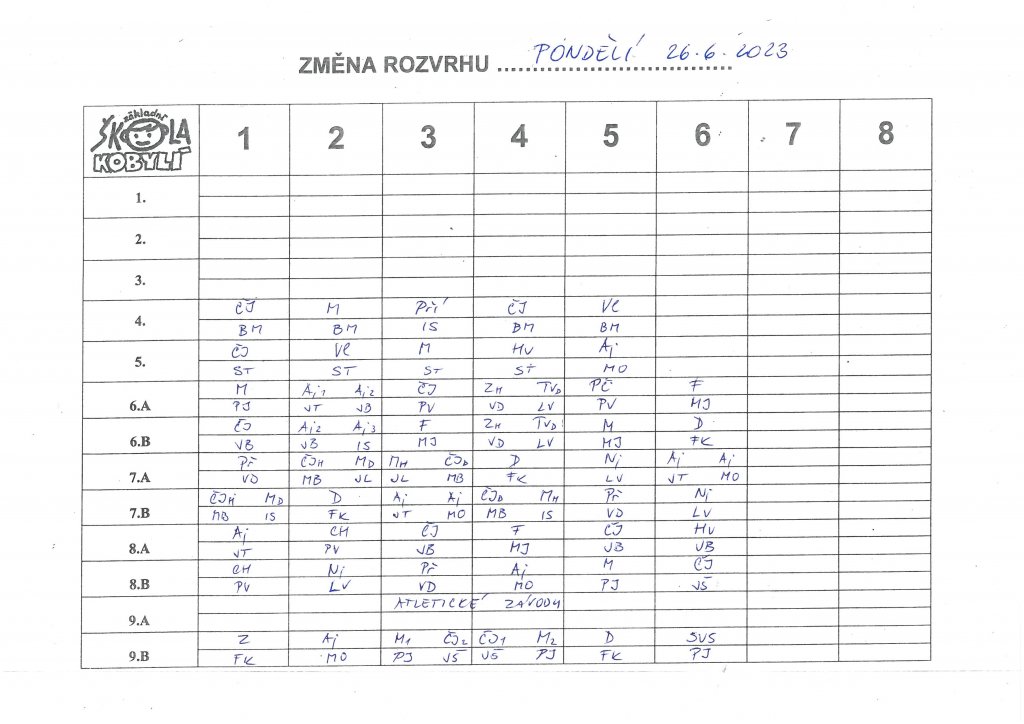 ZMĚNA ROZVRHU PONDĚLÍ 26.6.2023
základní
ŠKOLA
KOBYLÍ
1 2 3 4 5 6 7 8
1.
2.
3.
ČJ M Pří ČJ Vl
4.
BM BM IS BM BM
ČJ Vl M Hv Aj
5.
ST ST ST ST MO
M Aj1 Aj2 ČJ ZH TVD PČ F
6.A
PJ VT VB PV VD LV PV MJ
ČJ Aj2 Aj3 F ZH TVD M D
6.B
VB VB IS MJ VD LV MJ FK
Př ČJH MD MH ČJD D Nj Aj Aj
7.A
VD MB JL JL MB FK LV VT MO
ČJH MD D Aj Aj ČJD MH Př Nj
7.B
MB IS FK VT MO MB IS VD LV
Aj CH ČJ F ČJ Hv
8.A
VT PV VB MJ VB VB
CH Nj Př Aj M ČJ
8.B
PV LV VD MO PJ VŠ
ATLETICKÉ ZÁVODY
9.A
Z Aj M1 ČJ2 ČJ1 M2 D SVS
9.B
FK MO PJ VŠ VŠ PJ FK PJ